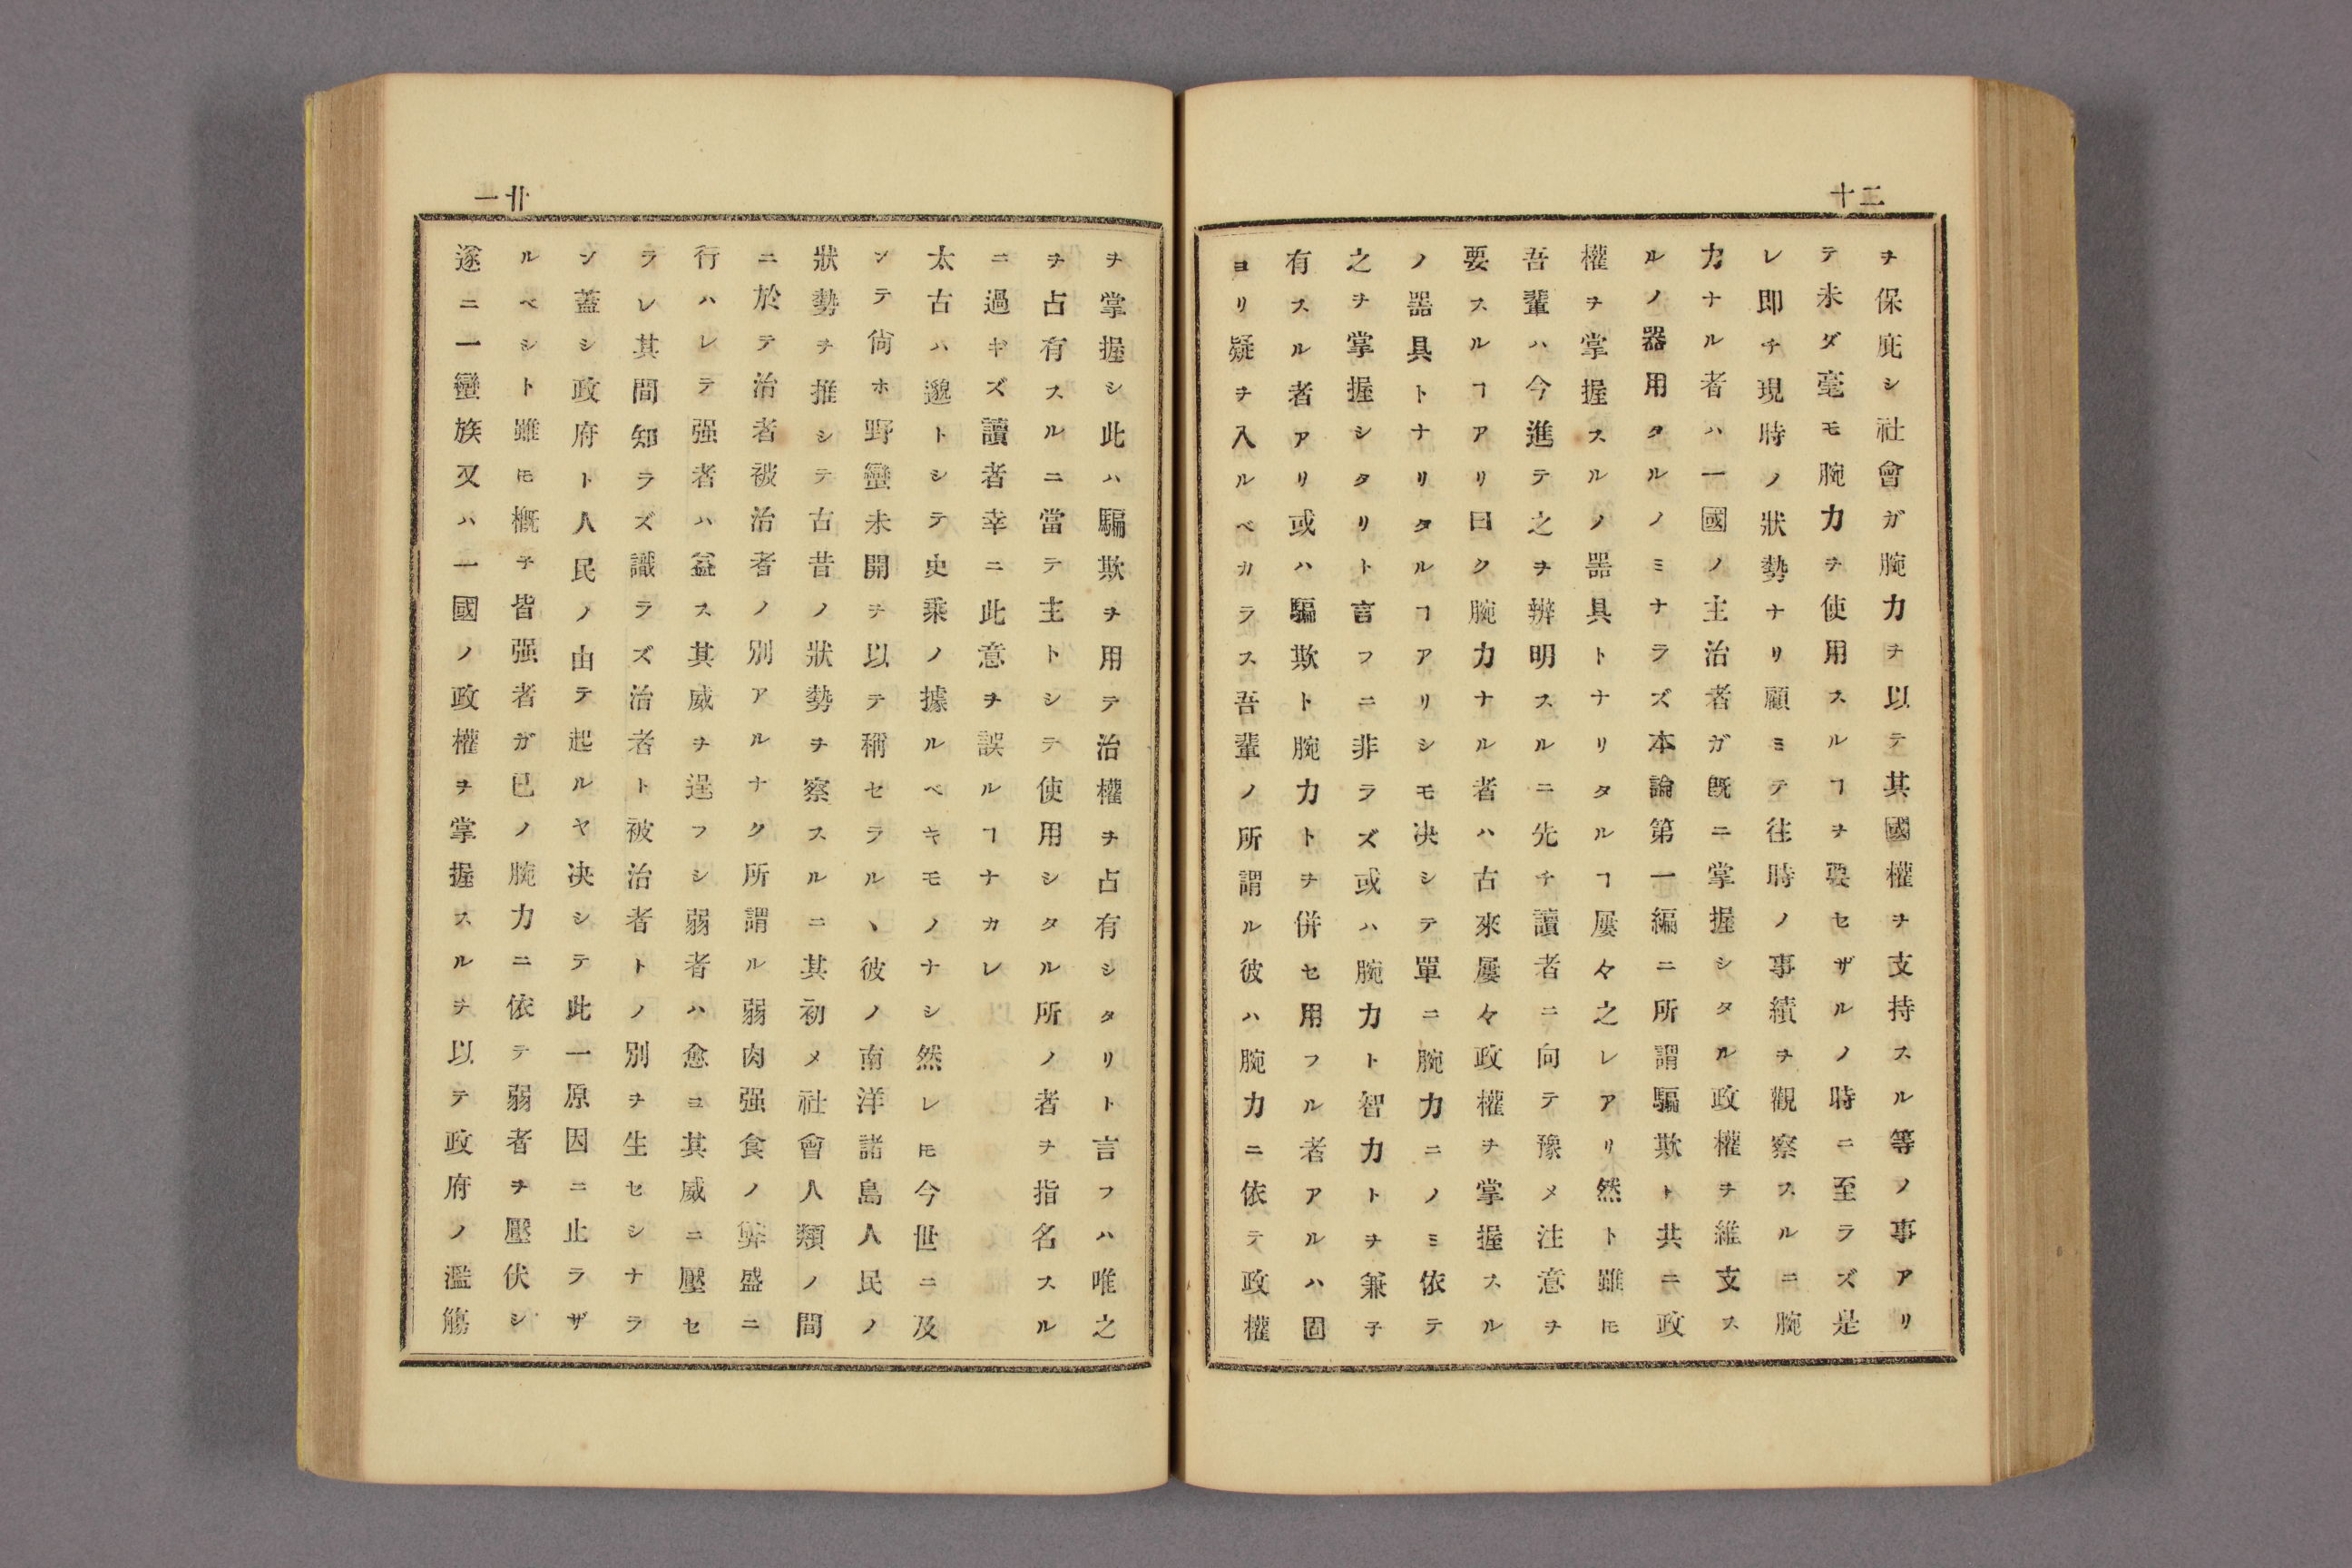 二十
ヲ保庇シ社會ガ腕力ヲ以テ其國權ヲ支持スル等ノ事アリ
テ未ダ毫モ腕力ヲ使用スルヿヲ要セザルノ時ニ至ラズ是
レ即チ現時ノ狀勢ナリ顧ミテ往時ノ事績ヲ觀察スルニ腕
力ナル者ハ一國ノ主治者ガ既ニ掌握シタル政權ヲ維支ス
ルノ器用タルノミナラズ本論第一編ニ所謂騙欺ト共ニ政
權ヲ掌握スルノ噐具トナリタルヿ屡々之レアリ然ト雖𪜈
吾輩ハ今進テ之ヲ辨明スルニ先チ讀者ニ向テ豫メ注意ヲ
要スルヿアリ曰ク腕力ナル者ハ古來屡々政權ヲ掌握スル
ノ噐具トナリタルヿアリシモ决シテ單ニ腕力ニノミ依テ
之ヲ掌握シタリト言フニ非ラズ或ハ腕力ト智力トヲ兼子
有スル者アリ或ハ騙欺ト腕力トヲ併セ用フル者アルハ固
ヨリ疑ヲ入ルベカラス吾輩ノ所謂ル彼ハ腕力ニ依テ政權
廿一
ヲ掌握シ此ハ騙欺ヲ用テ治權ヲ占有シタリト言フハ唯之
ヲ占有スルニ當テ主トシテ使用シタル所ノ者ヲ指名スル
ニ過ギズ讀者幸ニ此意ヲ誤ルヿナカレ
太古ハ邈トシテ史乘ノ據ルベキモノナシ然レ𪜈今世ニ及
ンテ尙ホ野蠻未開ヲ以テ稱セラルヽ彼ノ南洋諸島人民ノ
狀勢ヲ推シテ古昔ノ狀勢ヲ察スルニ其初メ社會人類ノ間
ニ於テ治者被治者ノ別アルナク所謂ル弱肉强食ノ弊盛ニ
行ハレテ强者ハ益ス其威ヲ逞フシ弱者ハ愈ヨ其威ニ壓セ
ラレ其間知ラズ識ラズ治者ト被治者トノ別ヲ生セシナラ
ン蓋シ政府ト人民ノ由テ起ルヤ决シテ此一原因ニ止ラザ
ルベシト雖𪜈槪子皆强者ガ已ノ腕力ニ依テ弱者ヲ壓伏シ
遂ニ一蠻族又ハ一國ノ政權ヲ掌握スルヲ以テ政府ノ濫觴